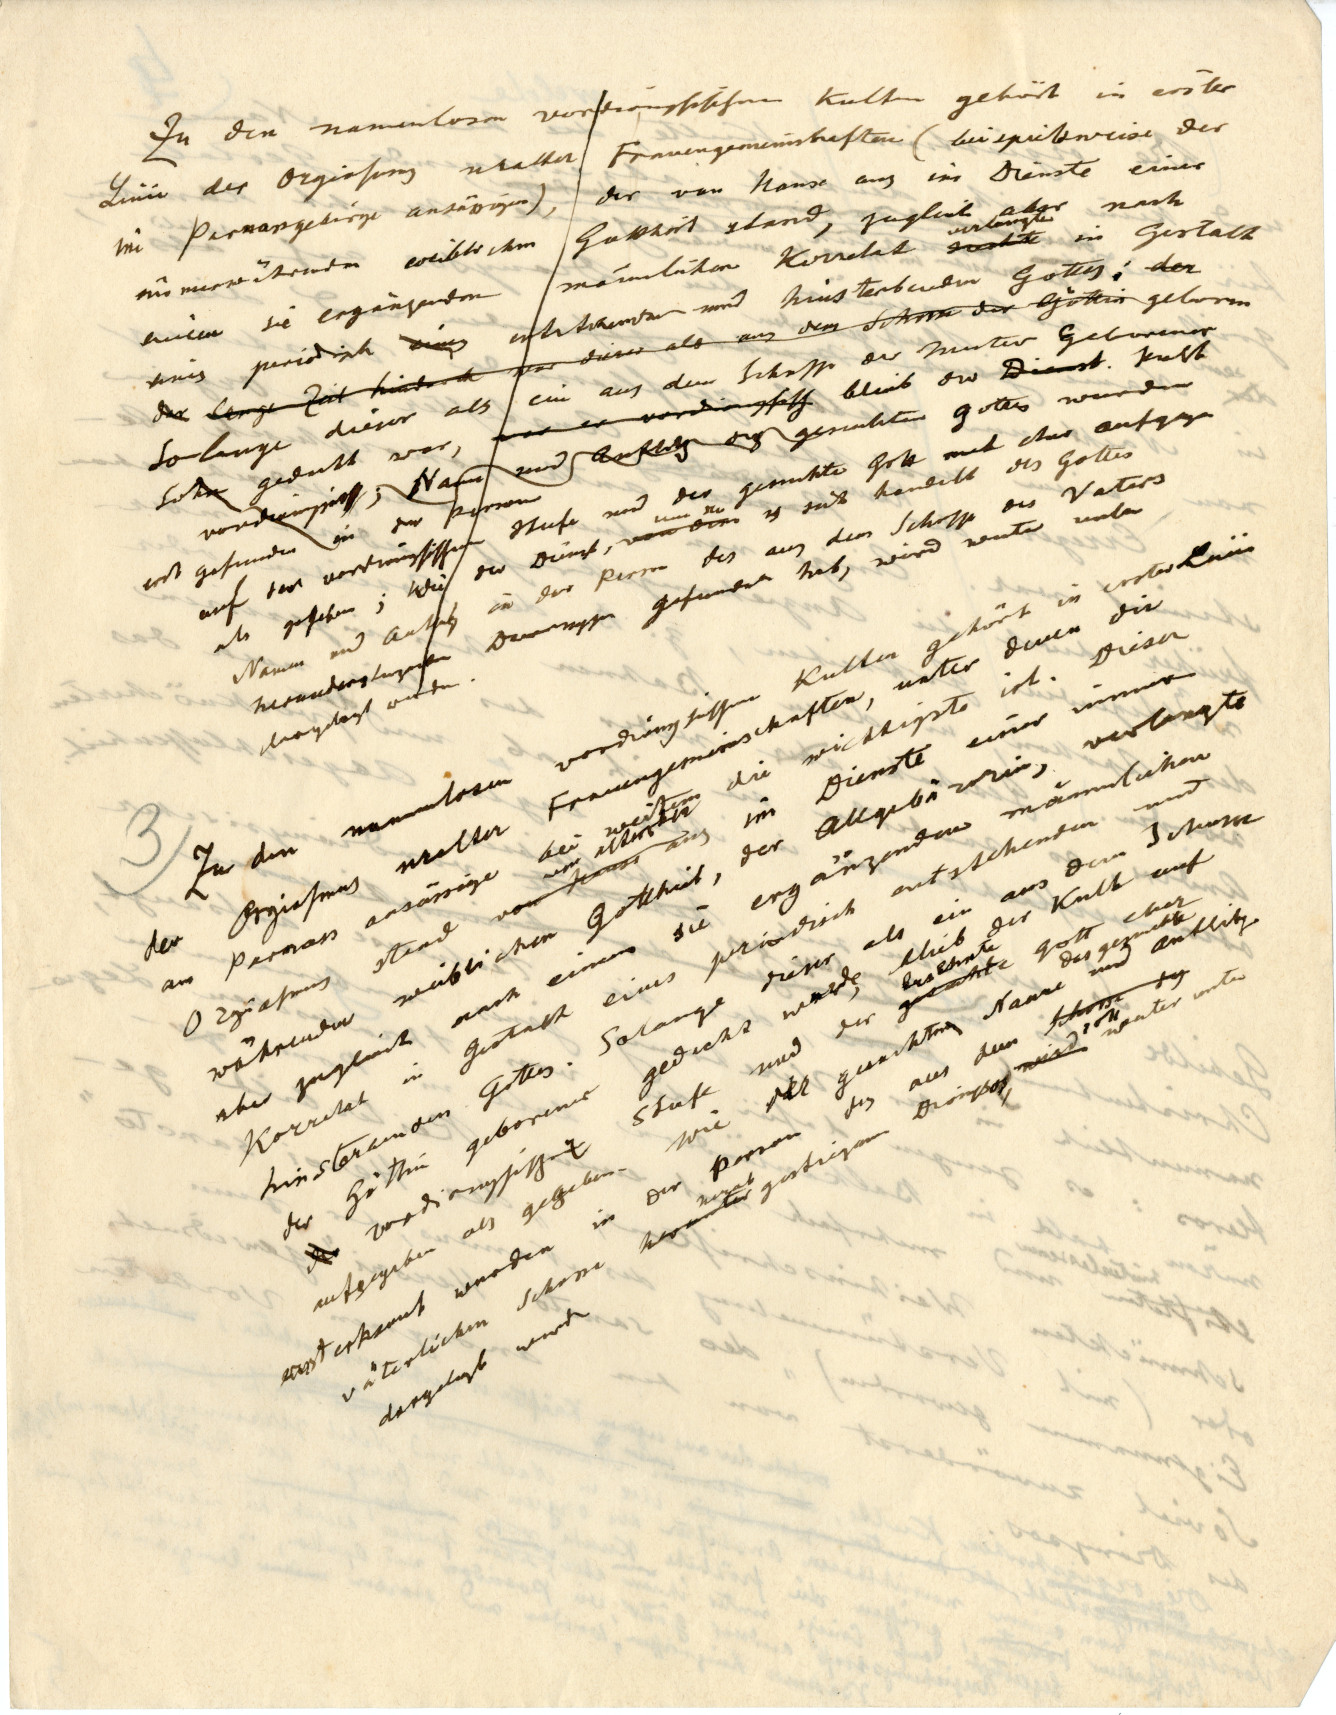 Zu den namenlosen vordionysischen Kulten gehört in erster
Linie der Orgiasmus uralter Frauengemeinschaften (beispielsweise der
im Parnassgebirge ansässigen), der von Hause aus im Dienste einer
immerwährenden weiblichen Gottheit stand, zugleich aber nach
einem sie ergänzenden männlichen Korrelat suchte verlangte in Gestalt
eines periodisch entstehenden und hinsterbenden Gottes; der
der lange Zeit hindurch nur dieser als aus dem Schosse der Göttin geboren
Solange dieser als ein aus dem Schosse der Mutter Geborener
Sohn gedacht war, war er vordionysisch blieb der Dienst. Kult
vordionysisch; Name und Antlitz des gesuchten Gottes wurden
erst gefunden in der Person
auf der vordionysischen Stufe und der gesuchte Gott mehr aufgege
als gegeben; Wie der Dienst, um den es sich handelt des Gottes
Namen und Antlitz in der Person des aus dem Schosse des Vaters
herausgestiegenen Dionysos gefunden hat, wird weiter unten
dargelegt werden.
3) Zu den namenlosen vordionysischen Kulten gehört in erster Linie
der Orgiasmus uralter Frauengemeinschaften, unter denen die
am Parnass ansässige bei weitem die wichtigste ist. Dieser
Orgiasmus stand von Hause aus von altersher im Dienste einer immer
währenden weiblichen Gottheit, der Allgebärerin, verlangte
aber zugleich nach einem sie ergänzenden männlichen
Korrelat in Gestalt eines periodisch entstehenden und
hinsterbenden Gottes. Solange dieser als ein aus dem Schosse
der Göttin geborener gedacht wurde, blieb der Kult auf
der vordionysischen Stufe und der gesuchte ersehnte Gott eher
aufgegeben als gegeben. Wie der gesuchten Name und das gesuchte Antlitz
erst erkannt wurden in der Person des aus dem Schosse des
väterlichen Schosse herunter herab gestiegenen Dionysos, wird soll weiter unten
dargelegt werden